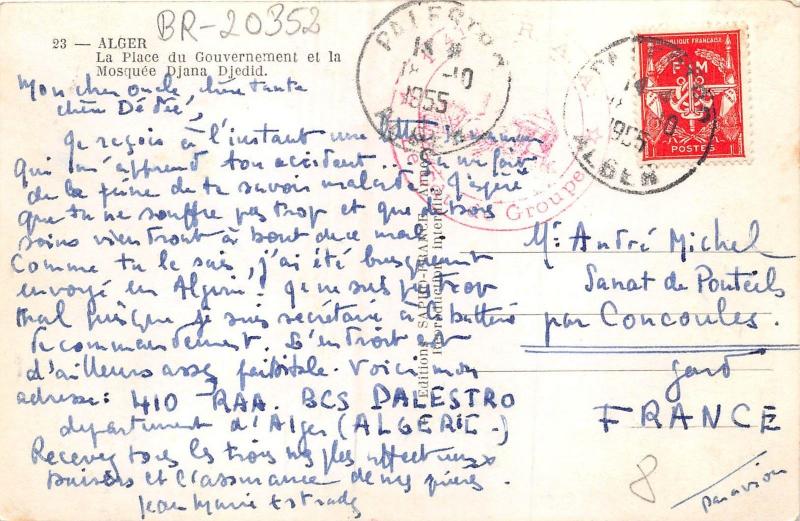 BR-20352
23 — ALGER
La Place du Gouvernement et la
Mosquée Djana Djedid.
Mon cher oncle, chère tante
chère Dédée,
Je reçois à l'instant une lettre de maman
qui m'apprend ton accident. Ça me fait
de la peine de te savoir malade. J'espère
que tu ne souffre pas trop et que de bons
soins viendront à bout de ce mal.
Comme tu le sais, j'ai été brusquement
envoyé en Algérie. Je ne suis pas trop
mal puisque je suis secrétaire à la batterie
de commandement. L'endroit est
d'ailleurs assez paisible. Voici mon
adresse: 410 RAA. BCS PALESTRO
département d'Alger (ALGERIE-)
Recevez tous les trois mes plus affectueux
baisers et l'assurance de mes prières.
Jean Marie Estrade
Editions
Reproduction Interdite
PALESTRO
18 -10
1955
ALGER
Groupe
RÉPUBLIQUE FRANÇAISE
F M
POSTES
1955
ALGER
Mr André Michel
Sanat de Ponteils
par Concoules.
Gard
FRANCE
8
par avion